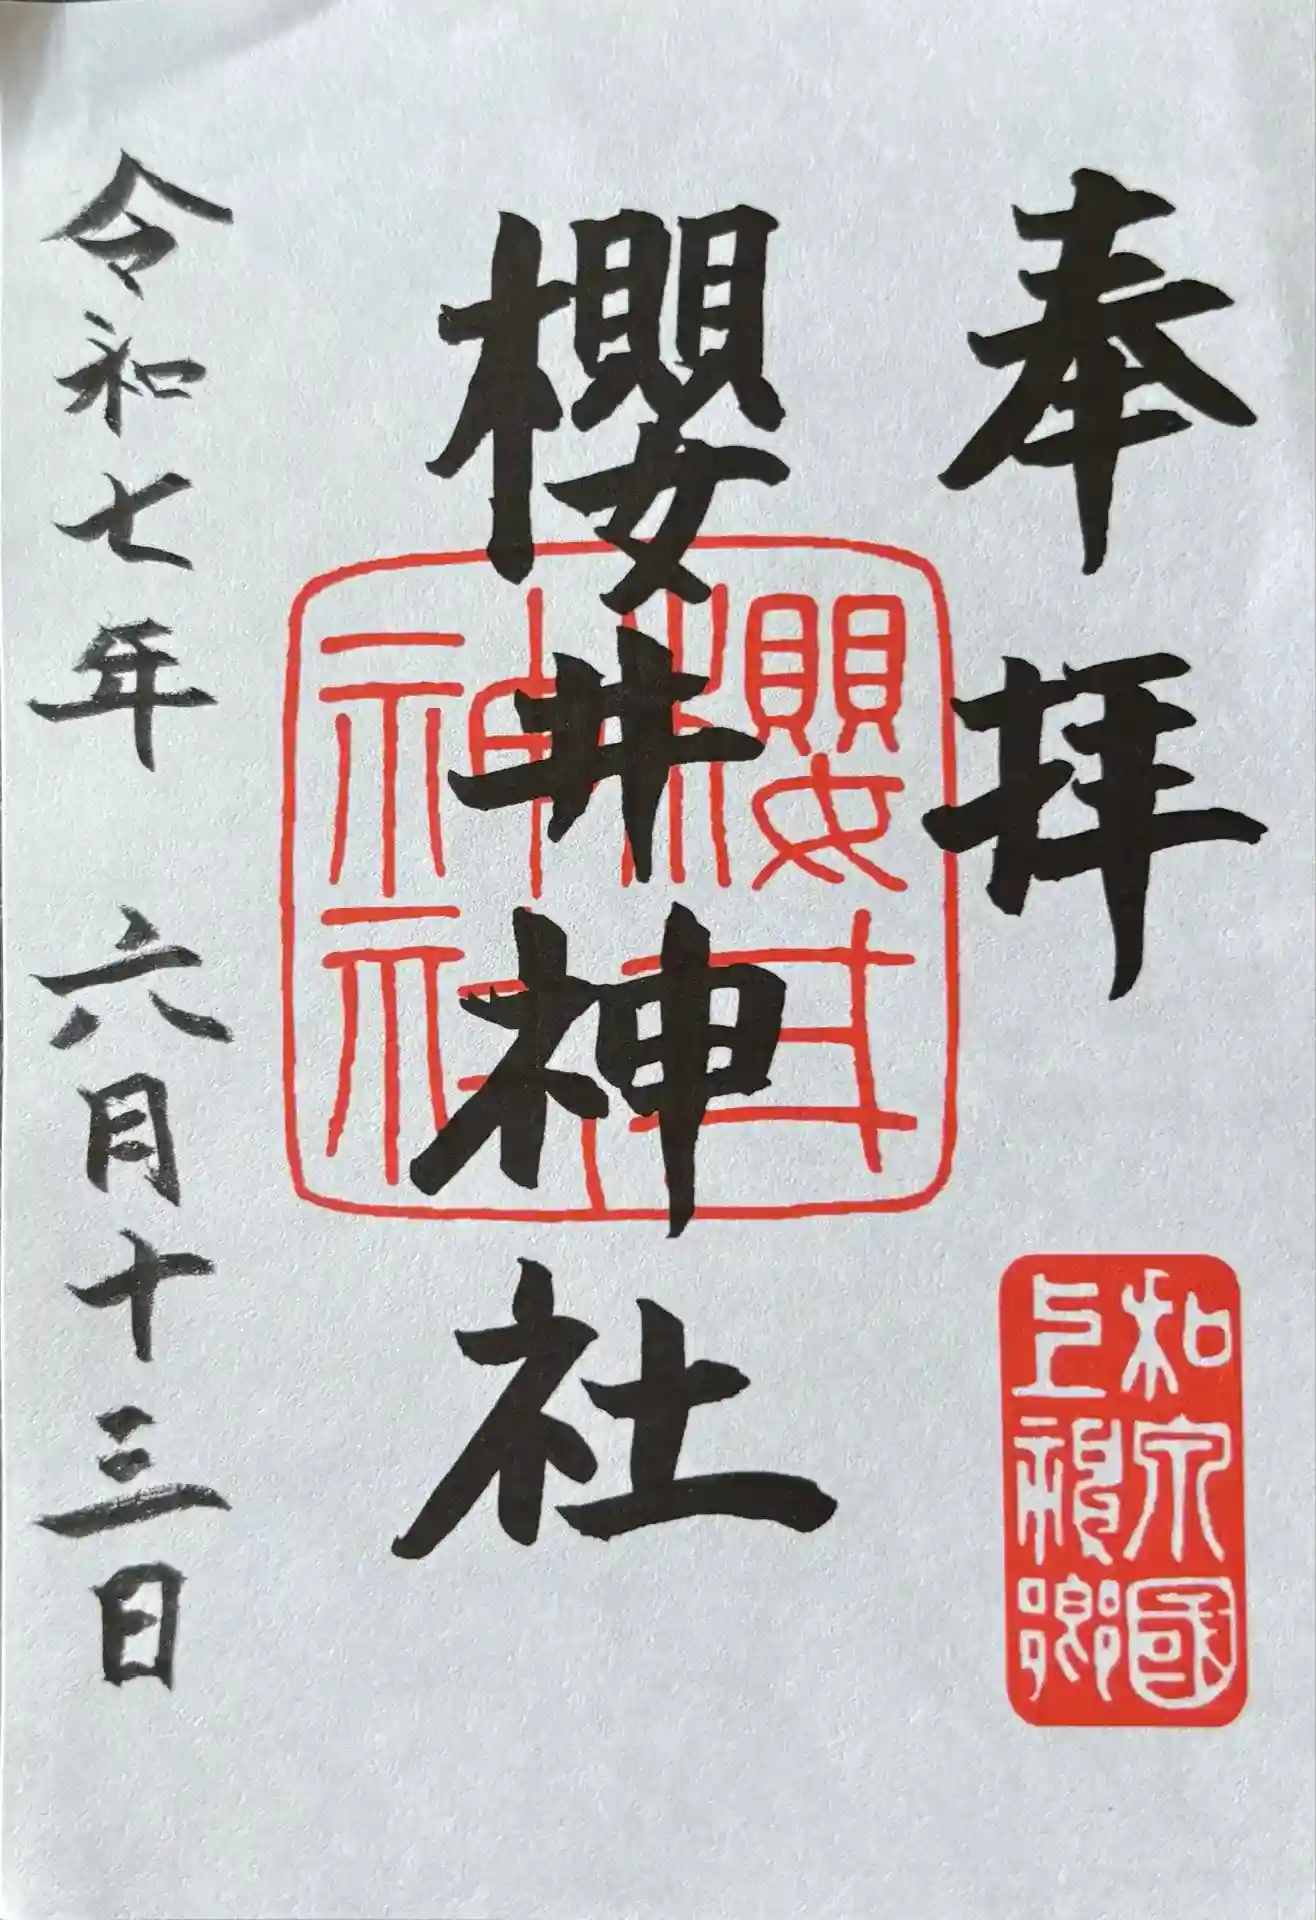 奉拝
和泉國
上神郷
櫻井神社
櫻井
神社
令和七年 六月十三日